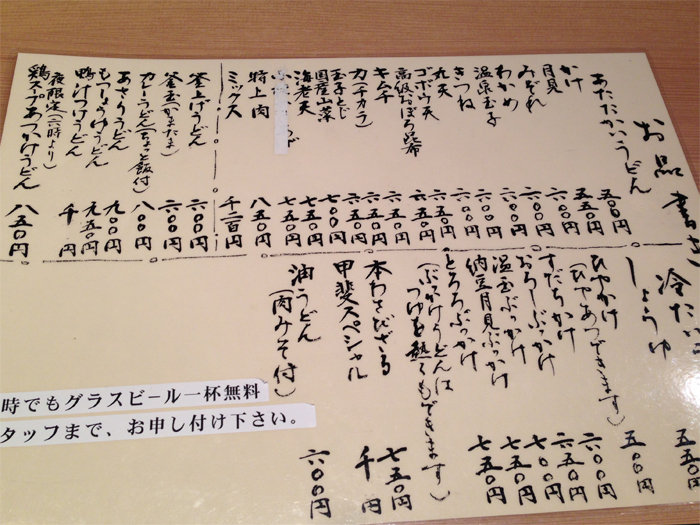 お品書き
あたたかいうどん
かけ 五〇〇円
月見 五五〇円
みぞれ 六〇〇円
わかめ 六〇〇円
温泉玉子 六〇〇円
きつね 六〇〇円
丸天 六〇〇円
ゴボウ天 六五〇円
高級おぼろ昆布 六五〇円
キムチ 六五〇円
力(チカラ) 六五〇円
玉子とじ 七〇〇円
国産山菜 七五〇円
海老天 七五〇円
特上肉 八五〇円
ミックス 千二百円
釜上げうどん 六〇〇円
釜玉(かまたま) 六〇〇円
カレーうどん(ちょっと飯付) 八〇〇円
あさりうどん 九〇〇円
もつしょうゆうどん 九五〇円
鴨汁つけうどん 千円
夜限定(六時より)
鶏スープあつかけうどん 八五〇円
冷たい
五五〇円
しょうゆ 五〇〇円
ひやかけ
(ひやあつできます) 六〇〇円
すだちかけ 六五〇円
おろしぶっかけ 七〇〇円
温玉ぶっかけ 六五〇円
納豆月見ぶっかけ 七五〇円
とろろぶっかけ 七五〇円
(ぶっかけうどんは
つゆを熱くもできます)
本わさびざる 七五〇円
甲斐スペシャル 千円
油うどん
(肉みそ付) 六〇〇円
時でもグラスビール一杯無料
タッフまで、お申し付け下さい。